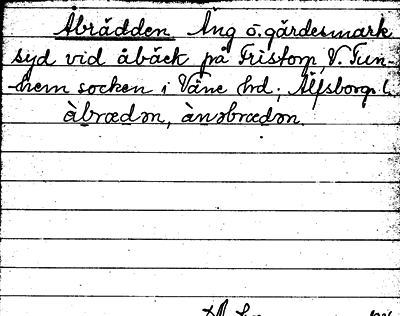 Åbrädden Äng o. gärdesmark
syd vid åbäck på Fristorp, V. Tun-
hem socken i Väne hrd; Älfsborgs l.
àbrædən, ànəbrædən.